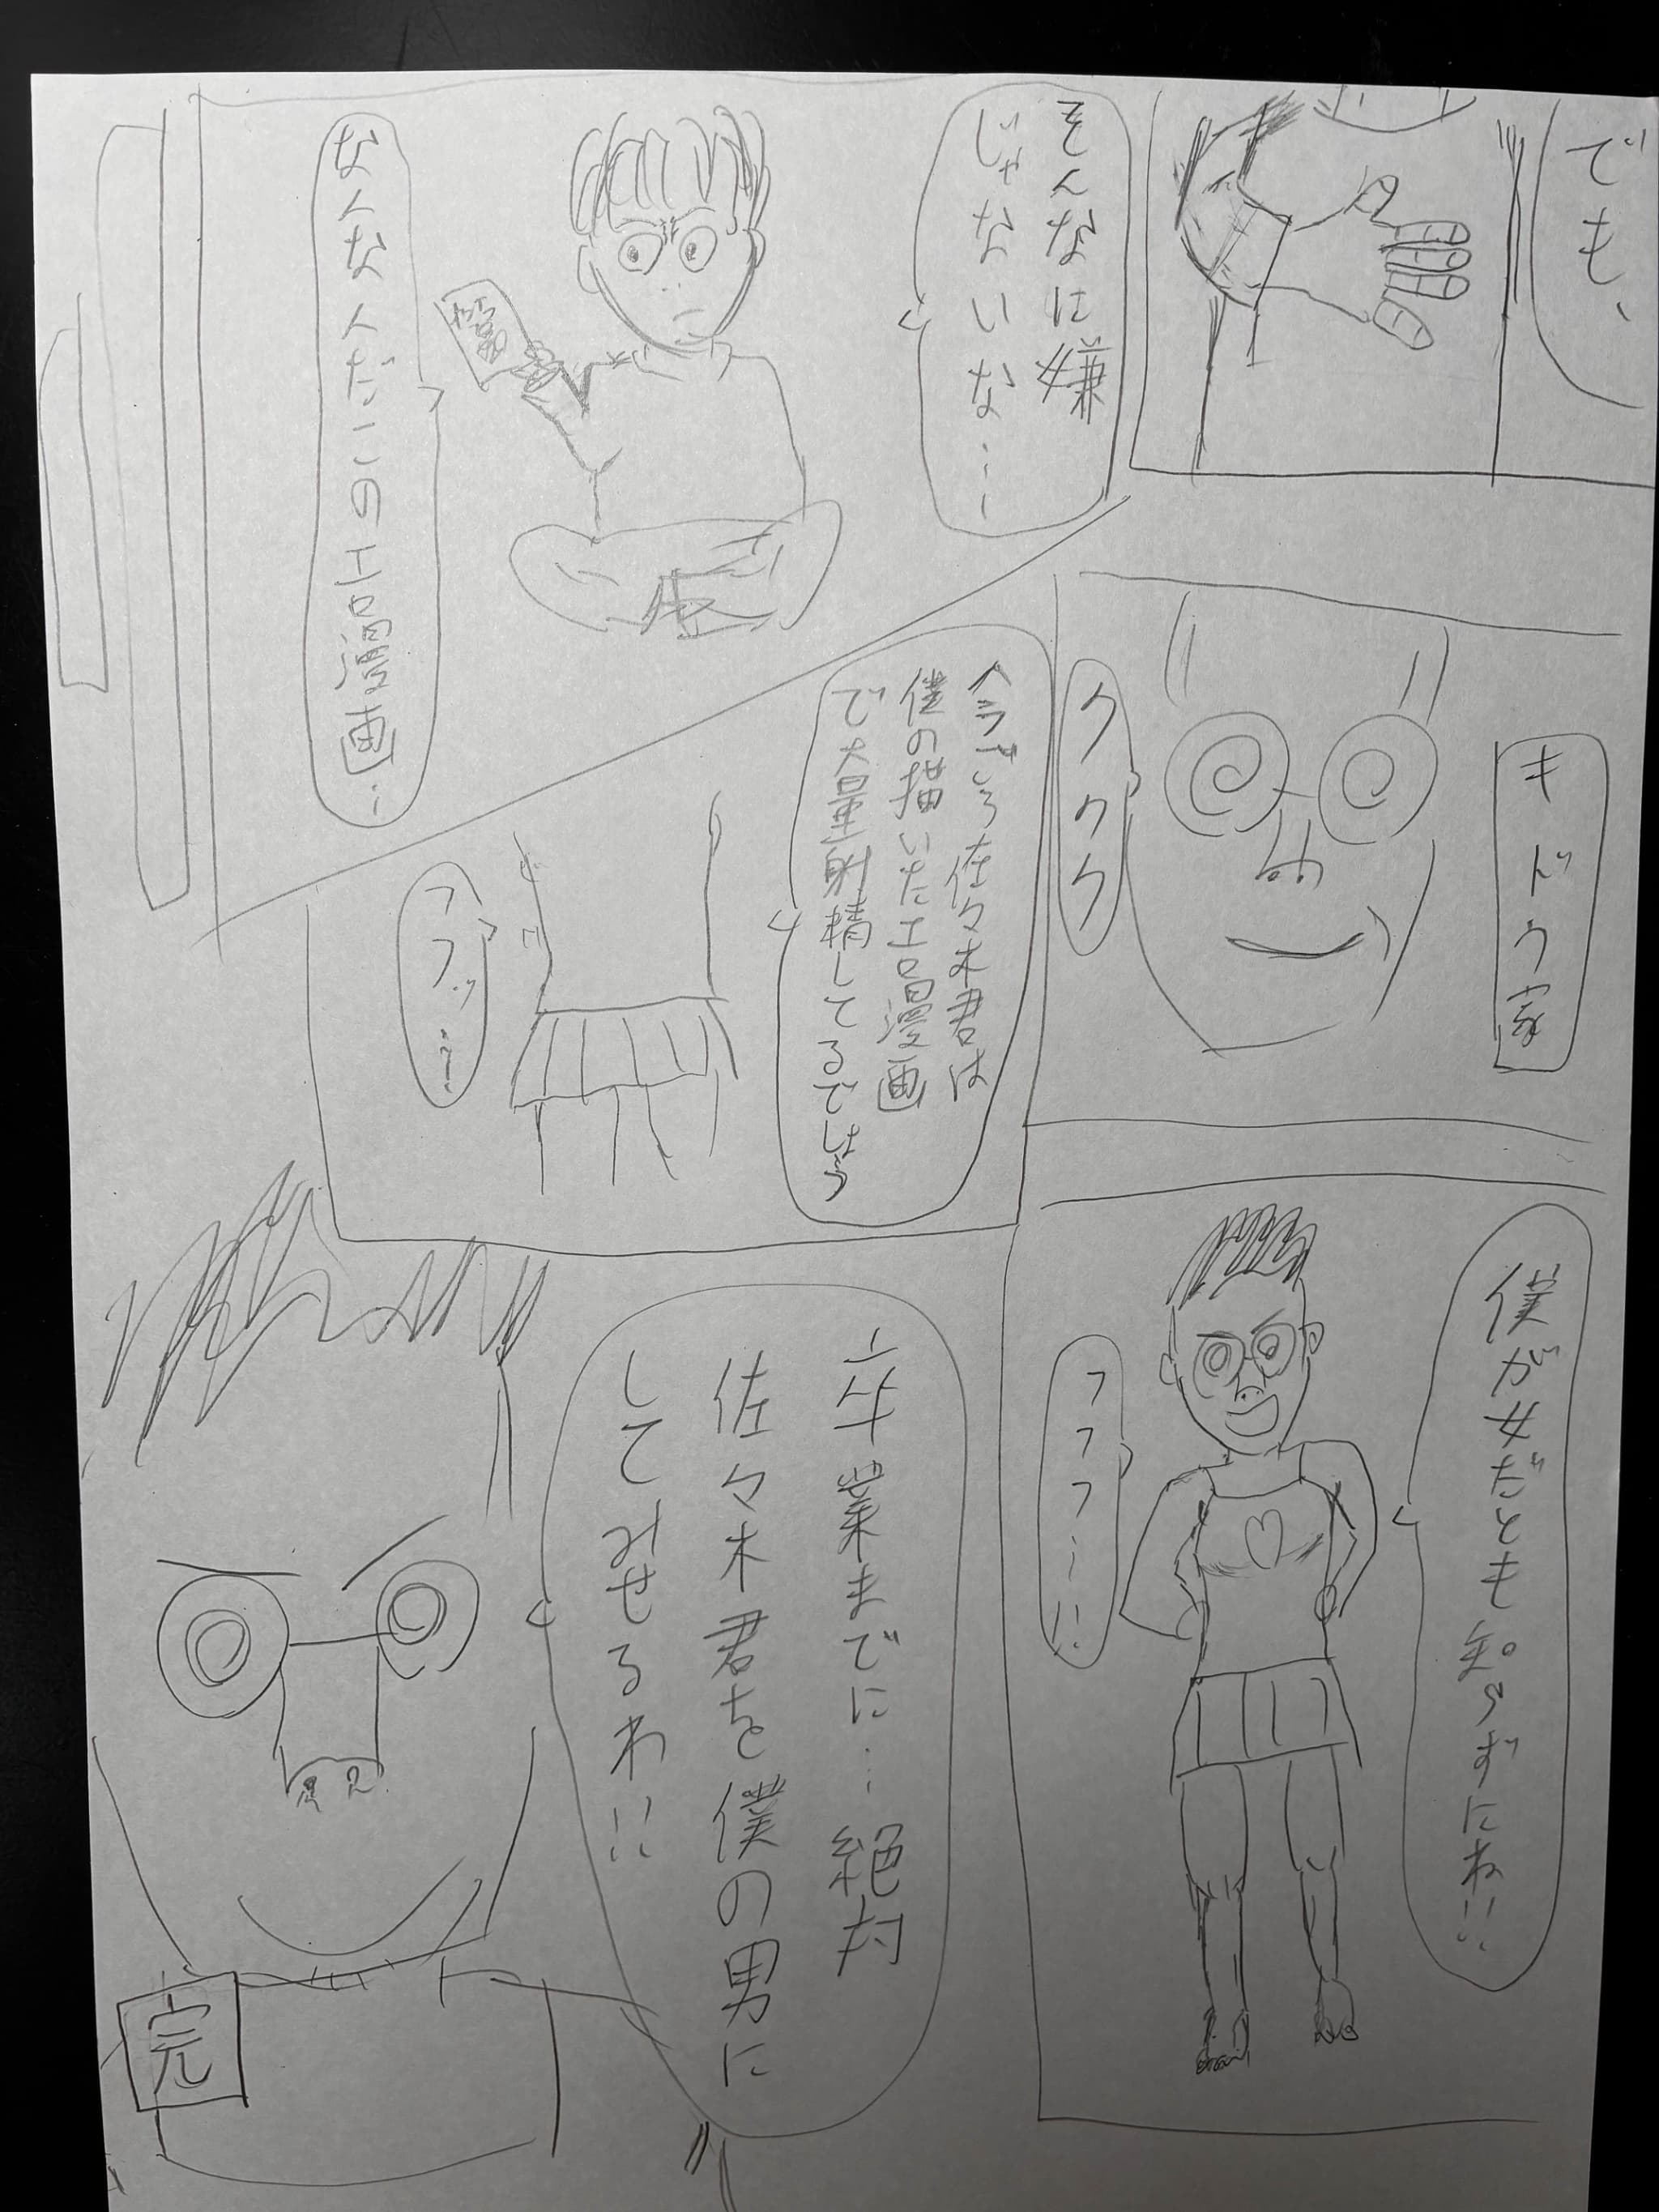 でも、
そんなに嫌
じゃないな…
なんなんだこのエロ漫画…
キドウ家
ククク
今ごろ佐々木君は
僕の描いたエロ漫画
で大量射精してるでしょう
フフッ…
僕が女だとも知らずにね!!
フフフ…!!
卒業までに…絶対
佐々木君を僕の男に
してみせるわ!!
完